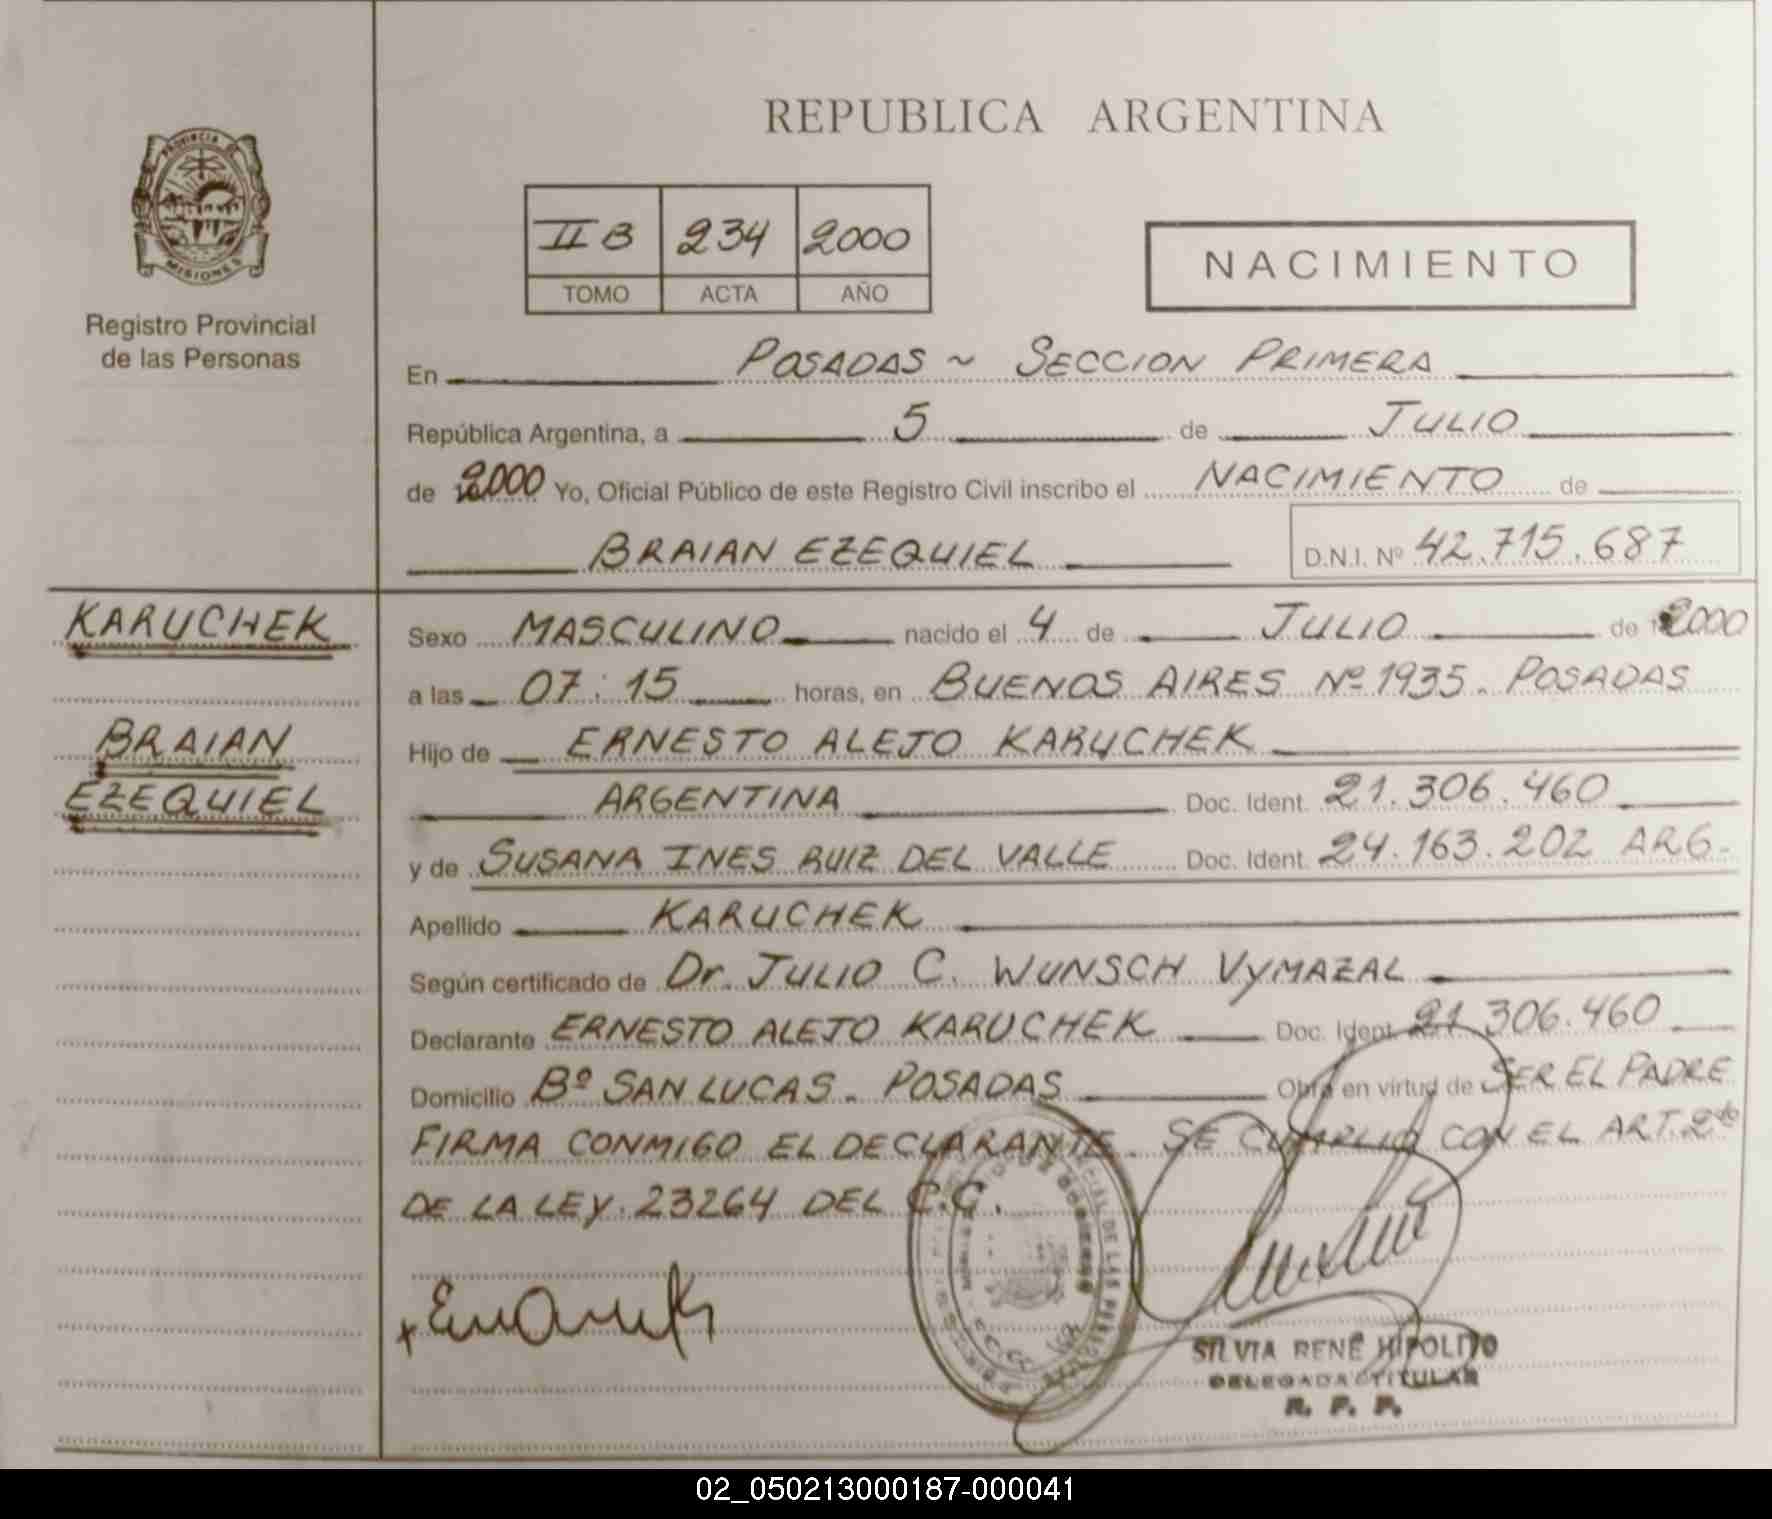 REPUBLICA ARGENTINA
PROVINCIA DE
MISIONES
Registro Provincial
de las Personas
II B 234 2000
TOMO ACTA AÑO
NACIMIENTO
En POSADAS ~ SECCION PRIMERA
República Argentina, a 5 de JULIO
de 2000 Yo, Oficial Público de este Registro Civil inscribo el NACIMIENTO de
BRAIAN EZEQUIEL D.N.I. Nº 42.715.687
KARUCHEK
BRAIAN
EZEQUIEL
Sexo MASCULINO nacido el 4 de JULIO de 2000
a las 07:15 horas, en BUENOS AIRES Nº 1935. POSADAS
Hijo de ERNESTO ALEJO KARUCHEK
ARGENTINA Doc. Ident. 21.306.460
y de SUSANA INES RUIZ DEL VALLE Doc. Ident. 24.163.202 ARG.
Apellido KARUCHEK
Según certificado de Dr. JULIO C. WUNSCH VYMAZAL
Declarante ERNESTO ALEJO KARUCHEK Doc. Ident. 21.306.460
Domicilio Bº SAN LUCAS. POSADAS Obra en virtud de SER EL PADRE
FIRMA CONMIGO EL DECLARANTE. SE CUMPLIO CON EL ART. 2do
DE LA LEY. 23264 DEL C.C.
SILVIA RENÉ HIPOLITO
DELEGADA TITULAR
R. P. P.
02_050213000187-000041